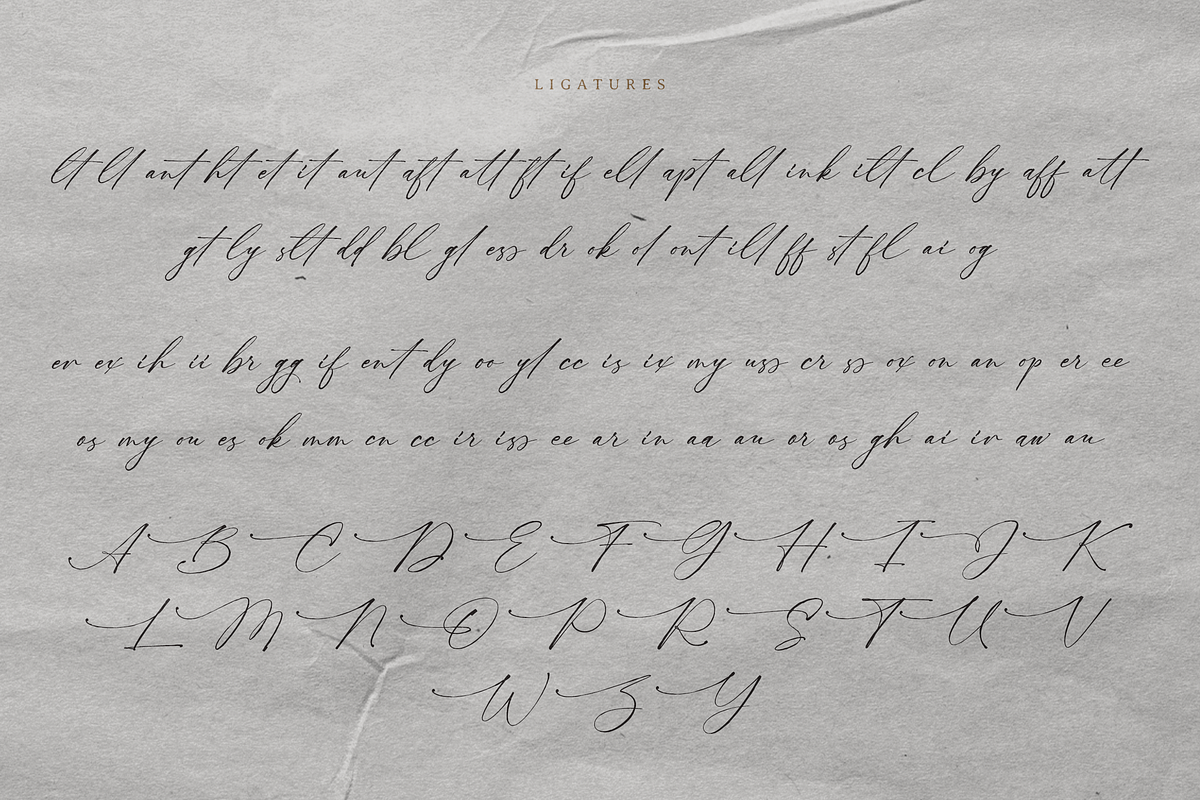 LIGATURES
lt ll ant ht et it aut aft att ft if elt apt all ink ilt cl by aff att
gt ly slt dd bl gl ess dr ok ol ont ill ff st fl ai og
er ex ih ii br gg if ent dy oo yl cc is ix my uss cr ss ox on an op er ee
os my ou es ok mm cn cc ir iss ee ar in aa au or os gh ai ir aw au
A B C D E F G H I J K
L M N O P R S T U V
W Z Y